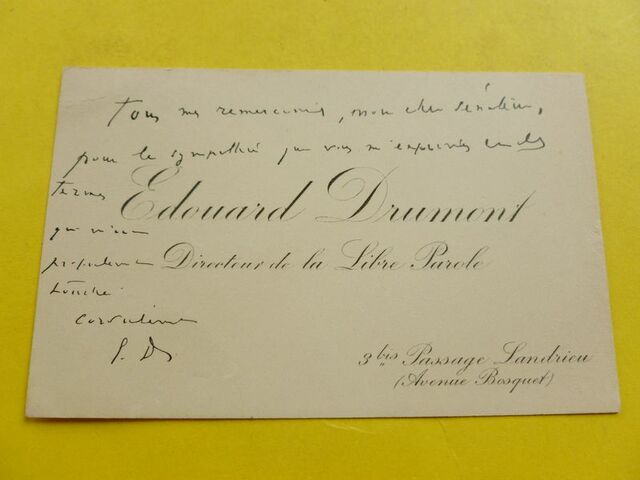 Tous mes remerciements, mon cher Sénateur,
pour la sympathie que vous m'exprimez en des
termes
Edouard Drumont
qui m'ont
profondément
Directeur de la Libre Parole
touché
Cordialement
E. D.
3 bis Passage Landrieu
(Avenue Bosquet)